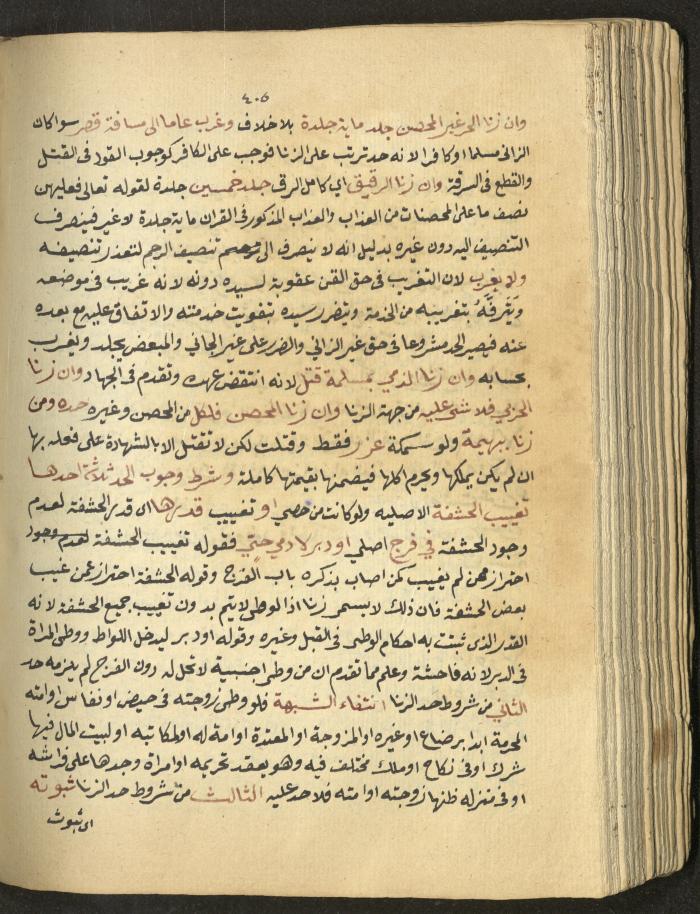 ٤٠٥
وان زنا الحر غير المحصن جلد ماية جلدة بلا خلاف وغرب عاما الى مسافة قصر سوا كان
الزانى مسلما او كافرا لانه حد ترتب على الزنا فوجب على الكافر كوجوب القود فى القتل
والقطع فى السرقة وان زنا الرقيق اي كامل الرق جلد خمسين جلدة لقوله تعالى فعليهن
نصف ما على المحصنات من العذاب والعذاب المذكور فى القران ماية جلدة لا غير فينصرف
التنصيف اليه دون غيره بدليل انه لا ينصرف الى تنصيف الرجم لتعذر تنصيفه
ولا يغرب لان التغريب فى حق القن عقوبة لسيده دونه لانه غريب فى موضعه
ويترفه بتغريبه من الخدمة ويتضرر سيده بتفويت خدمته والانفاق عليه مع بعده
عنه فيصير الحد مشروعا فى حق غير الزاني والضرر على غير الجاني والمبعض يجلد ويغرب
بحسابه وان زنا الذمي بمسلمة قتل لانه انتقض عهده وتقدم فى الجهاد وان زنا
الحربي فلا شئ عليه من جهة الزنا وان زنا المحصن فلكل من المحصن وغيره حده ومن
زنا ببهيمة ولو سمكة عزر فقط وقتلت لكن لا تقتل الا بالشهادة على فعله بها
ان لم يكن يملكها ويحرم اكلها فيضمنها بقيمتها كاملة وشرط وجوب الحد ثلاثة احدها
تغييب الحشفة الاصليه ولو كانت من خصي او تغييب قدرها اى قدر الحشفة لعدم
وجود الحشفة في فرج اصلي او دبر لادمي حتي فقوله تغييب الحشفة لعدم وجود
احتراز ممن لم يغيب كمن اصاب بذكره باب الفرج وقوله الحشفة احتراز عمن غيب
بعض الحشفة فان ذلك لا يسمى زنا اذ الوطى لا يتم بدون تغييب جميع الحشفة لانه
القدر الذى تثبت به احكام الوطى فى القبل وغيره وقوله او دبر ليدخل اللواط ووطى المراة
فى الدبر لانه فاحشة وعلم مما تقدم ان من وطى اجنبية لا تحل له دون الفرج لم يلزمه حد
الثاني من شروط حد الزنا انتفاء الشبهة فلو وطى زوجته في حيض او نفاس او امته
المحرمة ابدا برضاع او غيره او المزوجة او المعتدة او امة له او لمكاتبه او لبيت المال فيها
شرك او فى نكاح او ملك مختلف فيه وهو يعتقد تحريمه او امراة وجدها على فراشه
او فى منزله ظنها زوجته او امته فلا حد عليه الثالث من شروط حد الزنا ثبوته
اى ثبوت